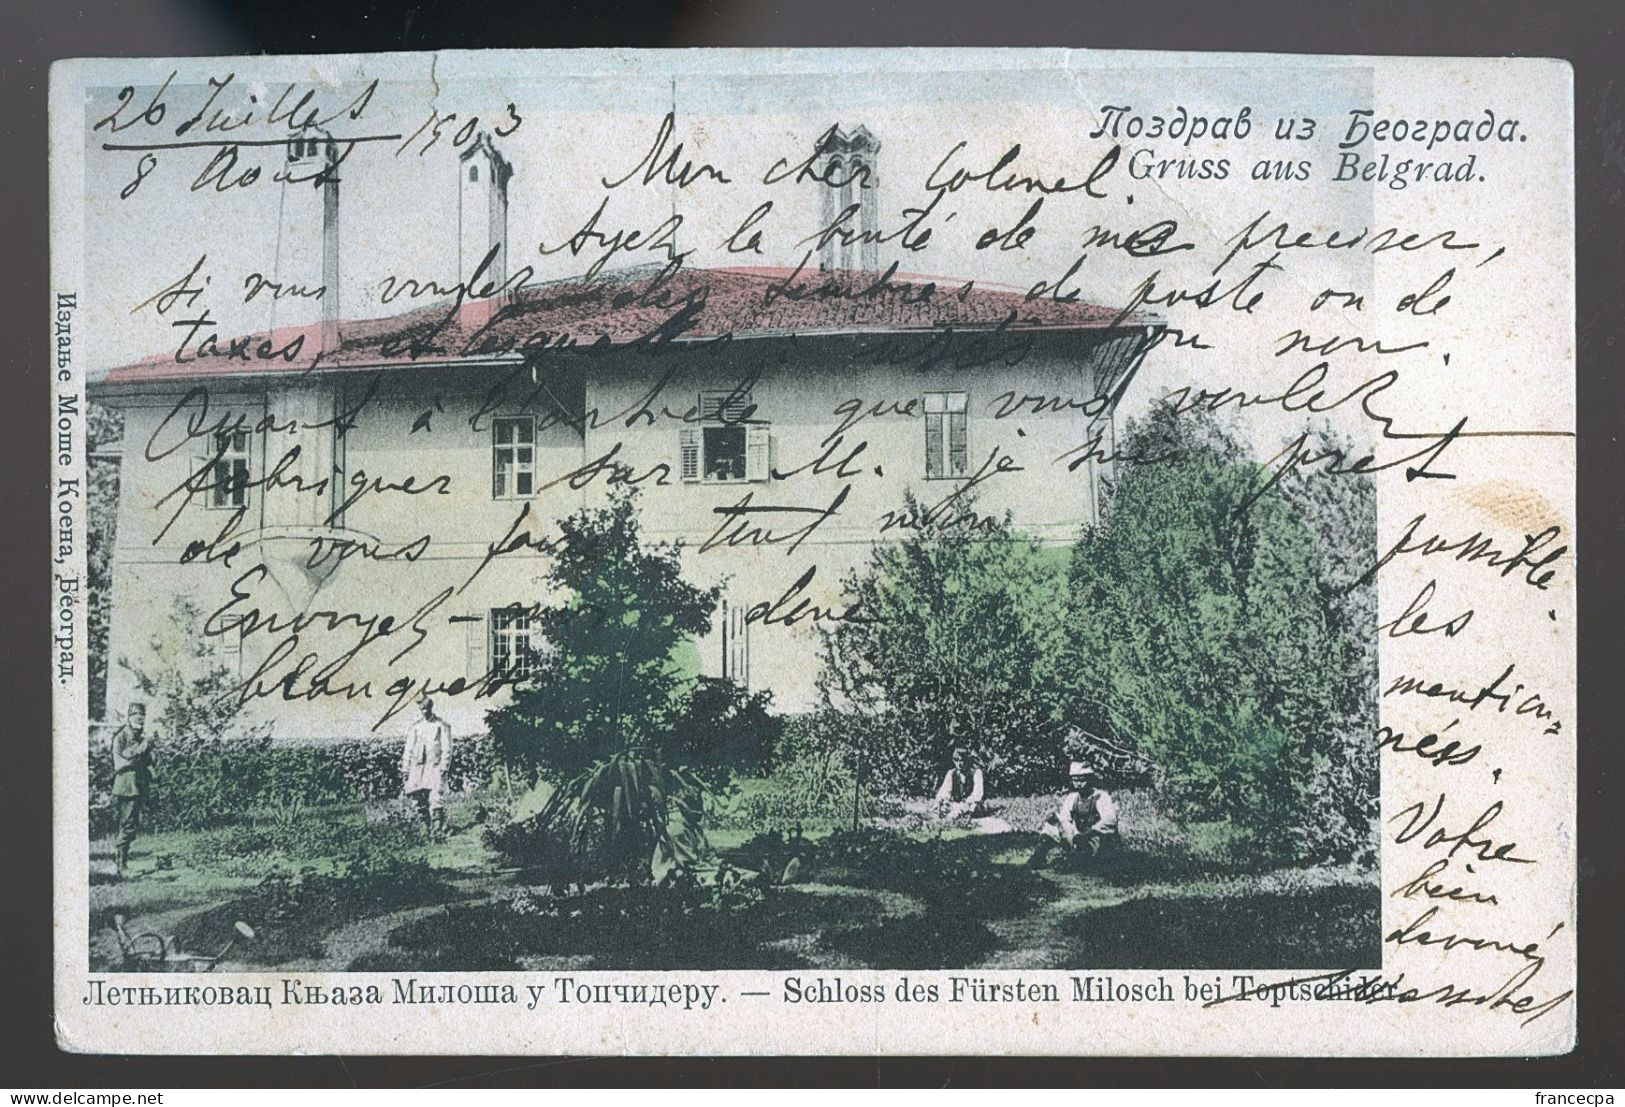 26 Juillet
8 Août 1903
Поздрав из Београда.
Gruss aus Belgrad.
Mon cher Colonel.
Ayez la bonté de me preciser,
si vous voulez des timbres de poste ou de
taxes, et lesquelles: usés ou non.
Quant à l'article que vous voulez
fabriquer sur M. je suis pret
de vous faire tout mon
possible.
Envoyez-moi donc
les
blanquettes
mention=
nées.
Votre
bien
devoué
Издање Моше Коена, Београд.
Летњиковац Књаза Милоша у Топчидеру. — Schloss des Fürsten Milosch bei Toptschider.
francecpa